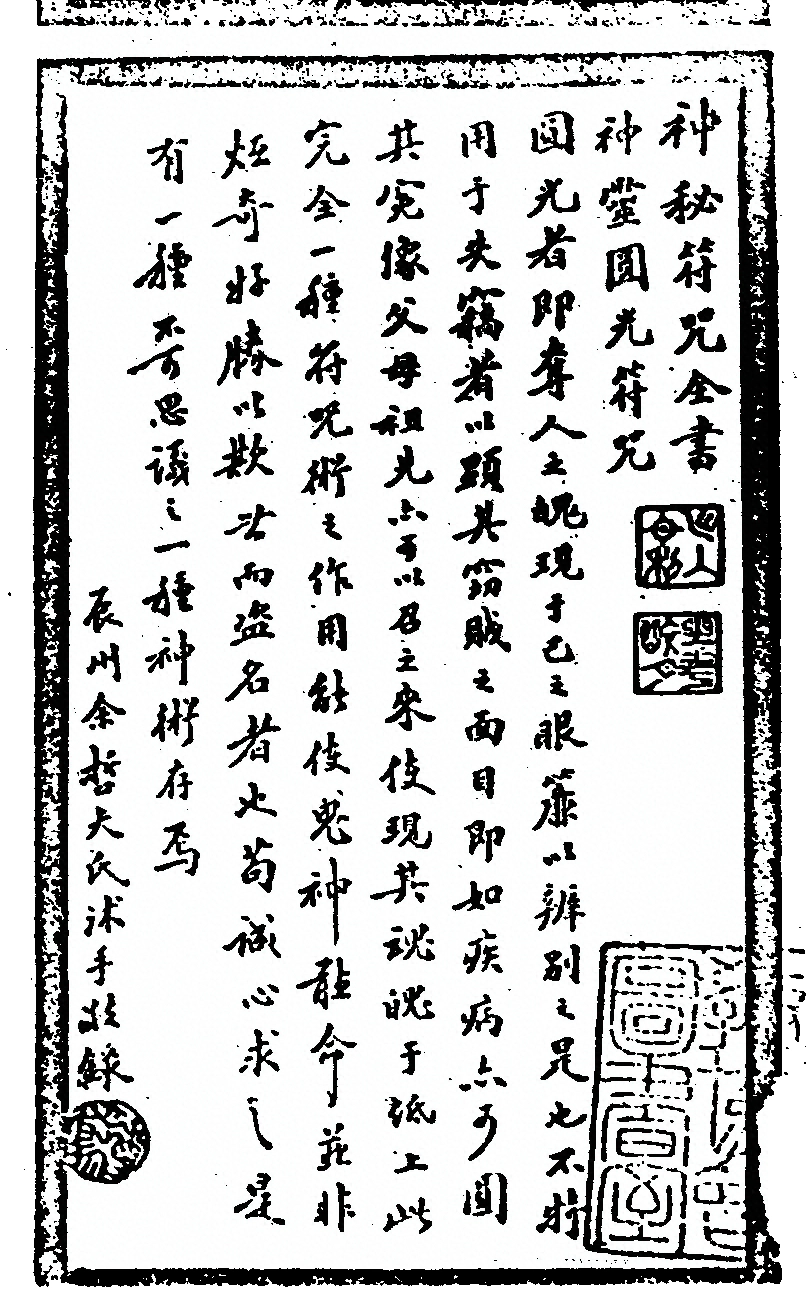 神秘符咒全書
神靈圓光符咒
圓光者即奪人之魄現于己之眼簾以辨別之是也不特
用于失竊者以顯其竊賊之面目即如疾病亦可圓
其冤像父母祖先亦可以召之來使現其魂魄于紙上此
完全一種符咒術之作用能使鬼神聽命並非
炫奇好勝以欺世而盜名者也苟誠心求之是
有一種不可思議之一種神術存焉
辰州余哲夫氏沐手敬錄